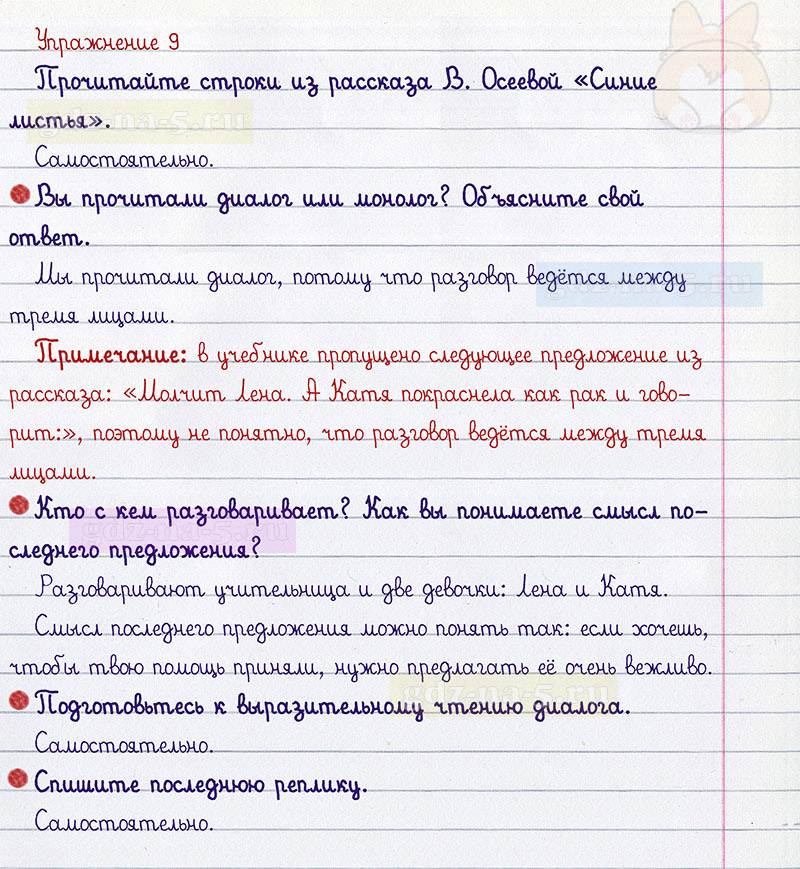 Упражнение 9
Прочитайте строки из рассказа В. Осеевой «Синие
листья».
gdz-na-5.ru
Самостоятельно.
Вы прочитали диалог или монолог? Объясните свой
ответ.
Мы прочитали диалог, потому что разговор ведётся между
gdz-na-5.ru
тремя лицами.
Примечание: в учебнике пропущено следующее предложение из
рассказа: «Молчит Лена. А Катя покраснела как рак и гово-
рит:», поэтому не понятно, что разговор ведётся между тремя
лицами.
Кто с кем разговаривает? Как вы понимаете смысл по-
gdz-na-5.ru
следнего предложения?
Разговаривают учительница и две девочки: Лена и Катя.
Смысл последнего предложения можно понять так: если хочешь,
чтобы твою помощь приняли, нужно предлагать её очень вежливо.
gdz-na-5.ru
Подготовьтесь к выразительному чтению диалога.
Самостоятельно.
Спишите последнюю реплику.
Самостоятельно.